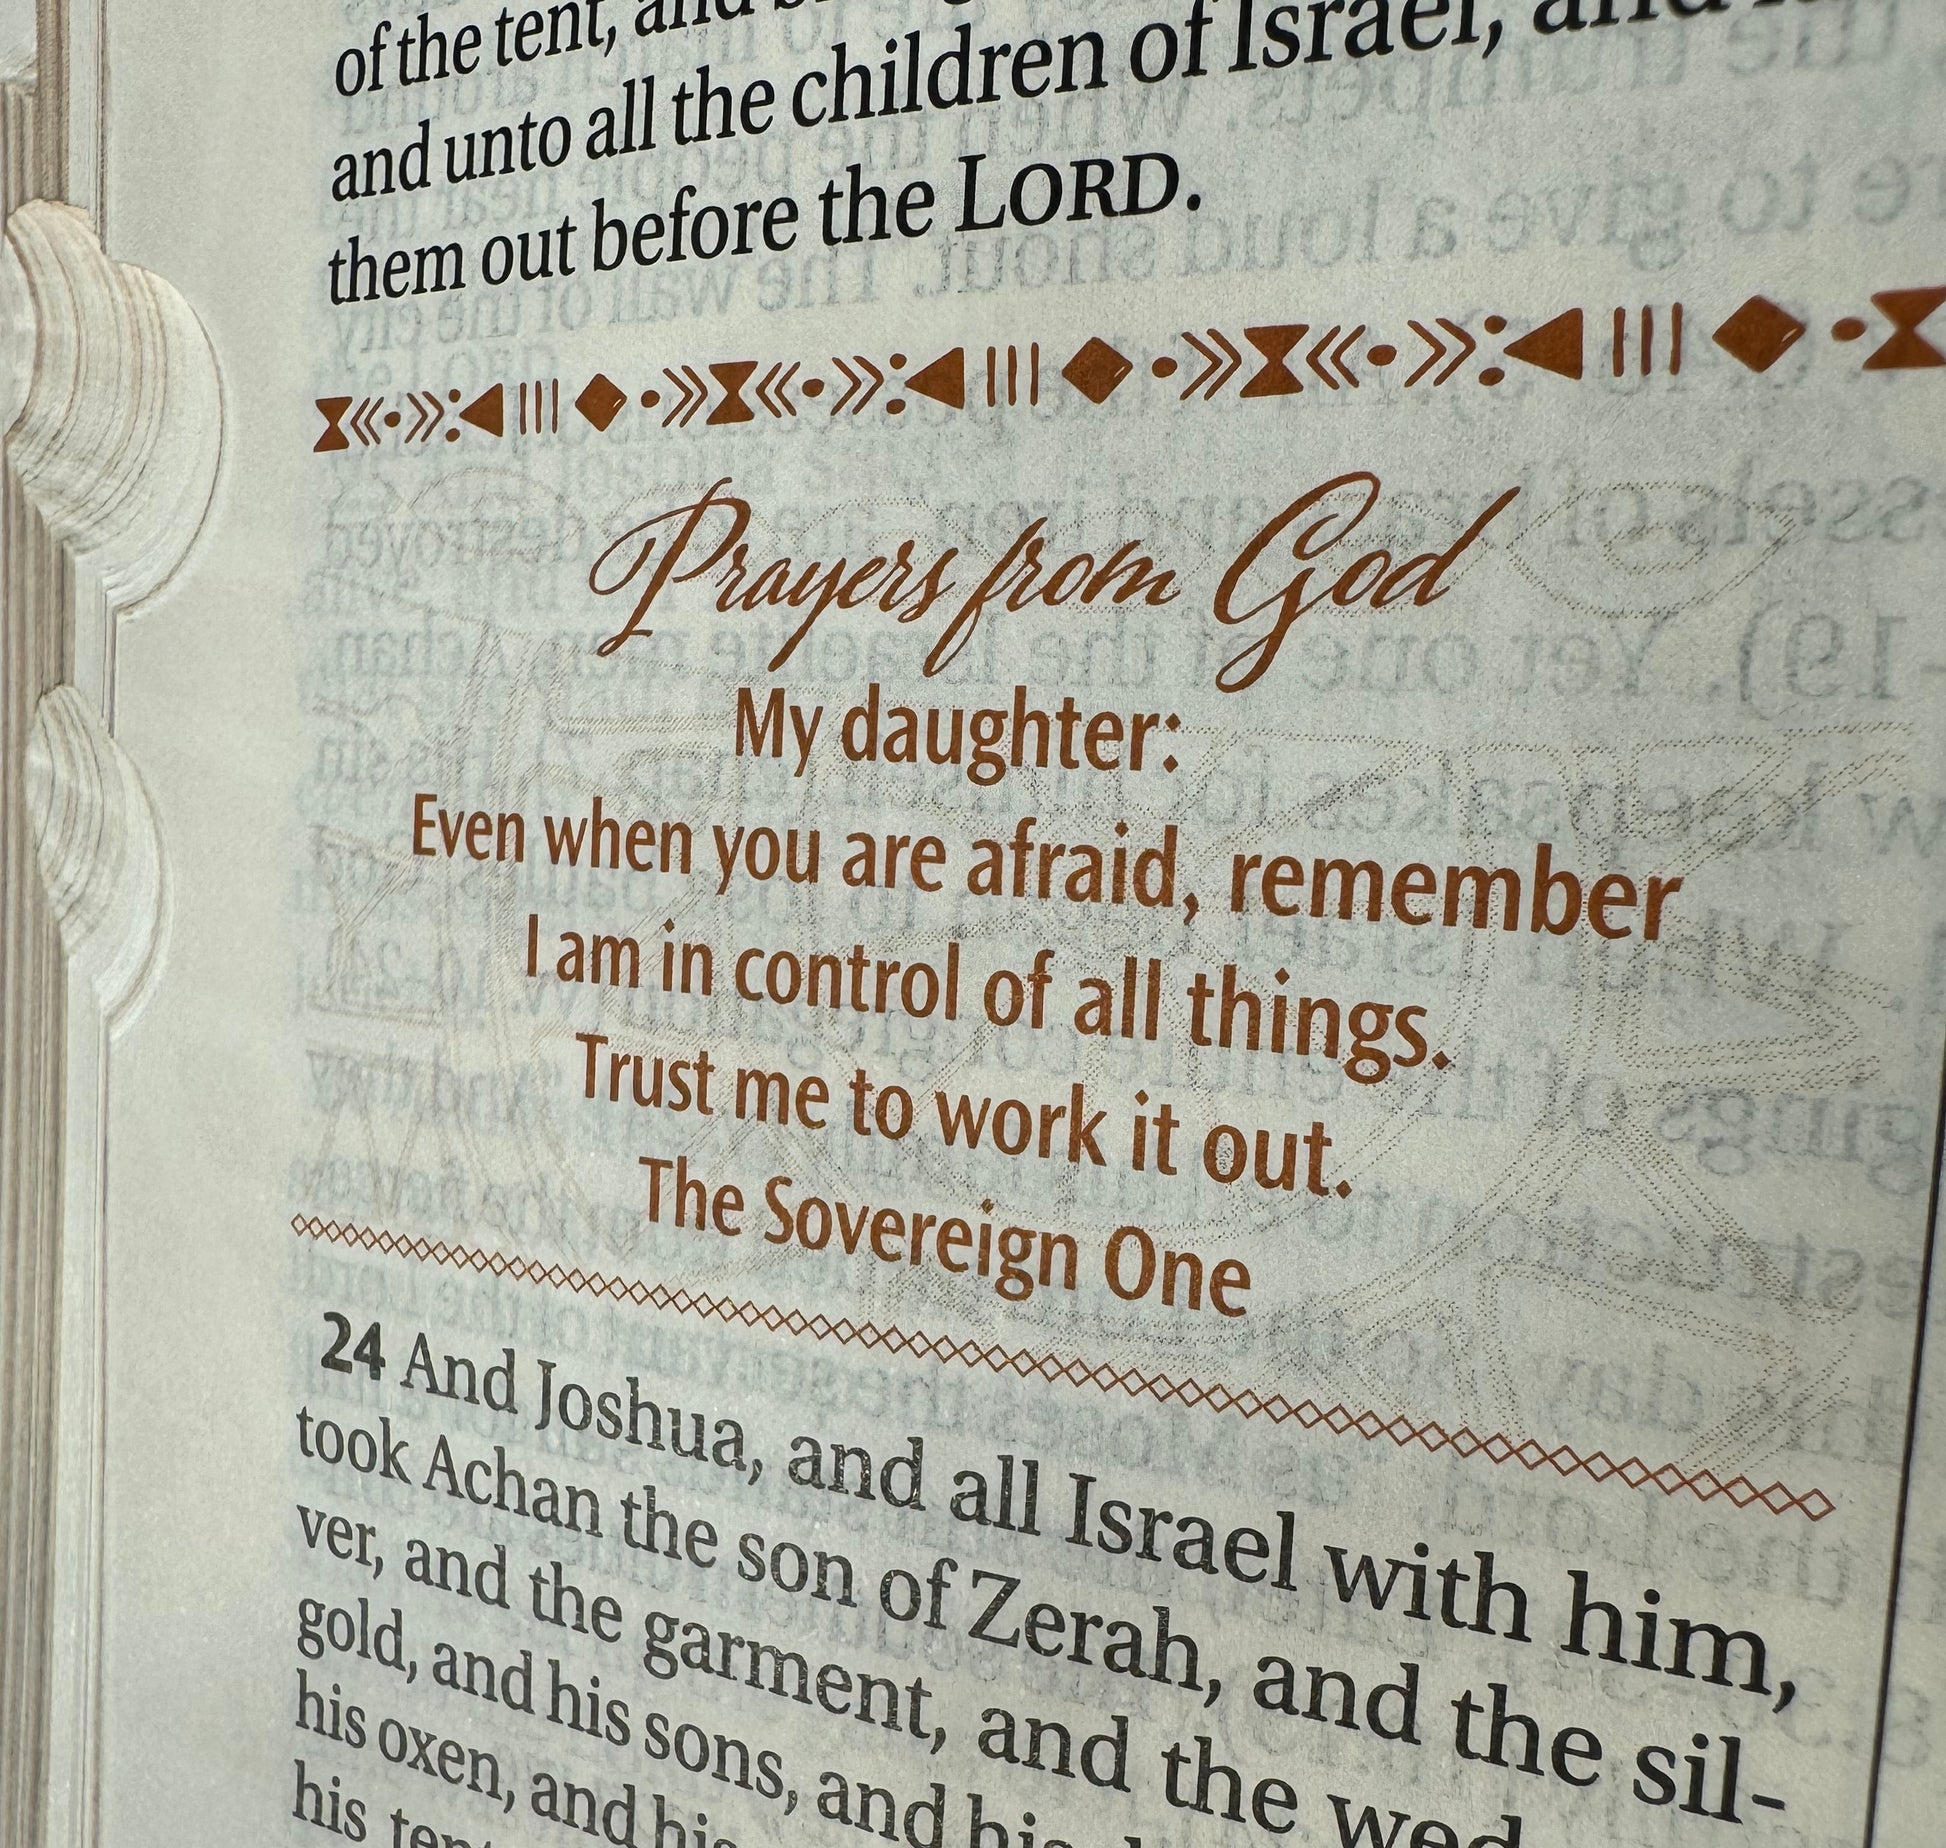 of the tent, and
and unto all the children of Israel, and
them out before the LORD.
Prayers from God
My daughter:
Even when you are afraid, remember
I am in control of all things.
Trust me to work it out.
The Sovereign One
24 And Joshua, and all Israel with him,
took Achan the son of Zerah, and the sil-
ver, and the garment, and the
gold, and his sons, and his
his oxen, and his
his